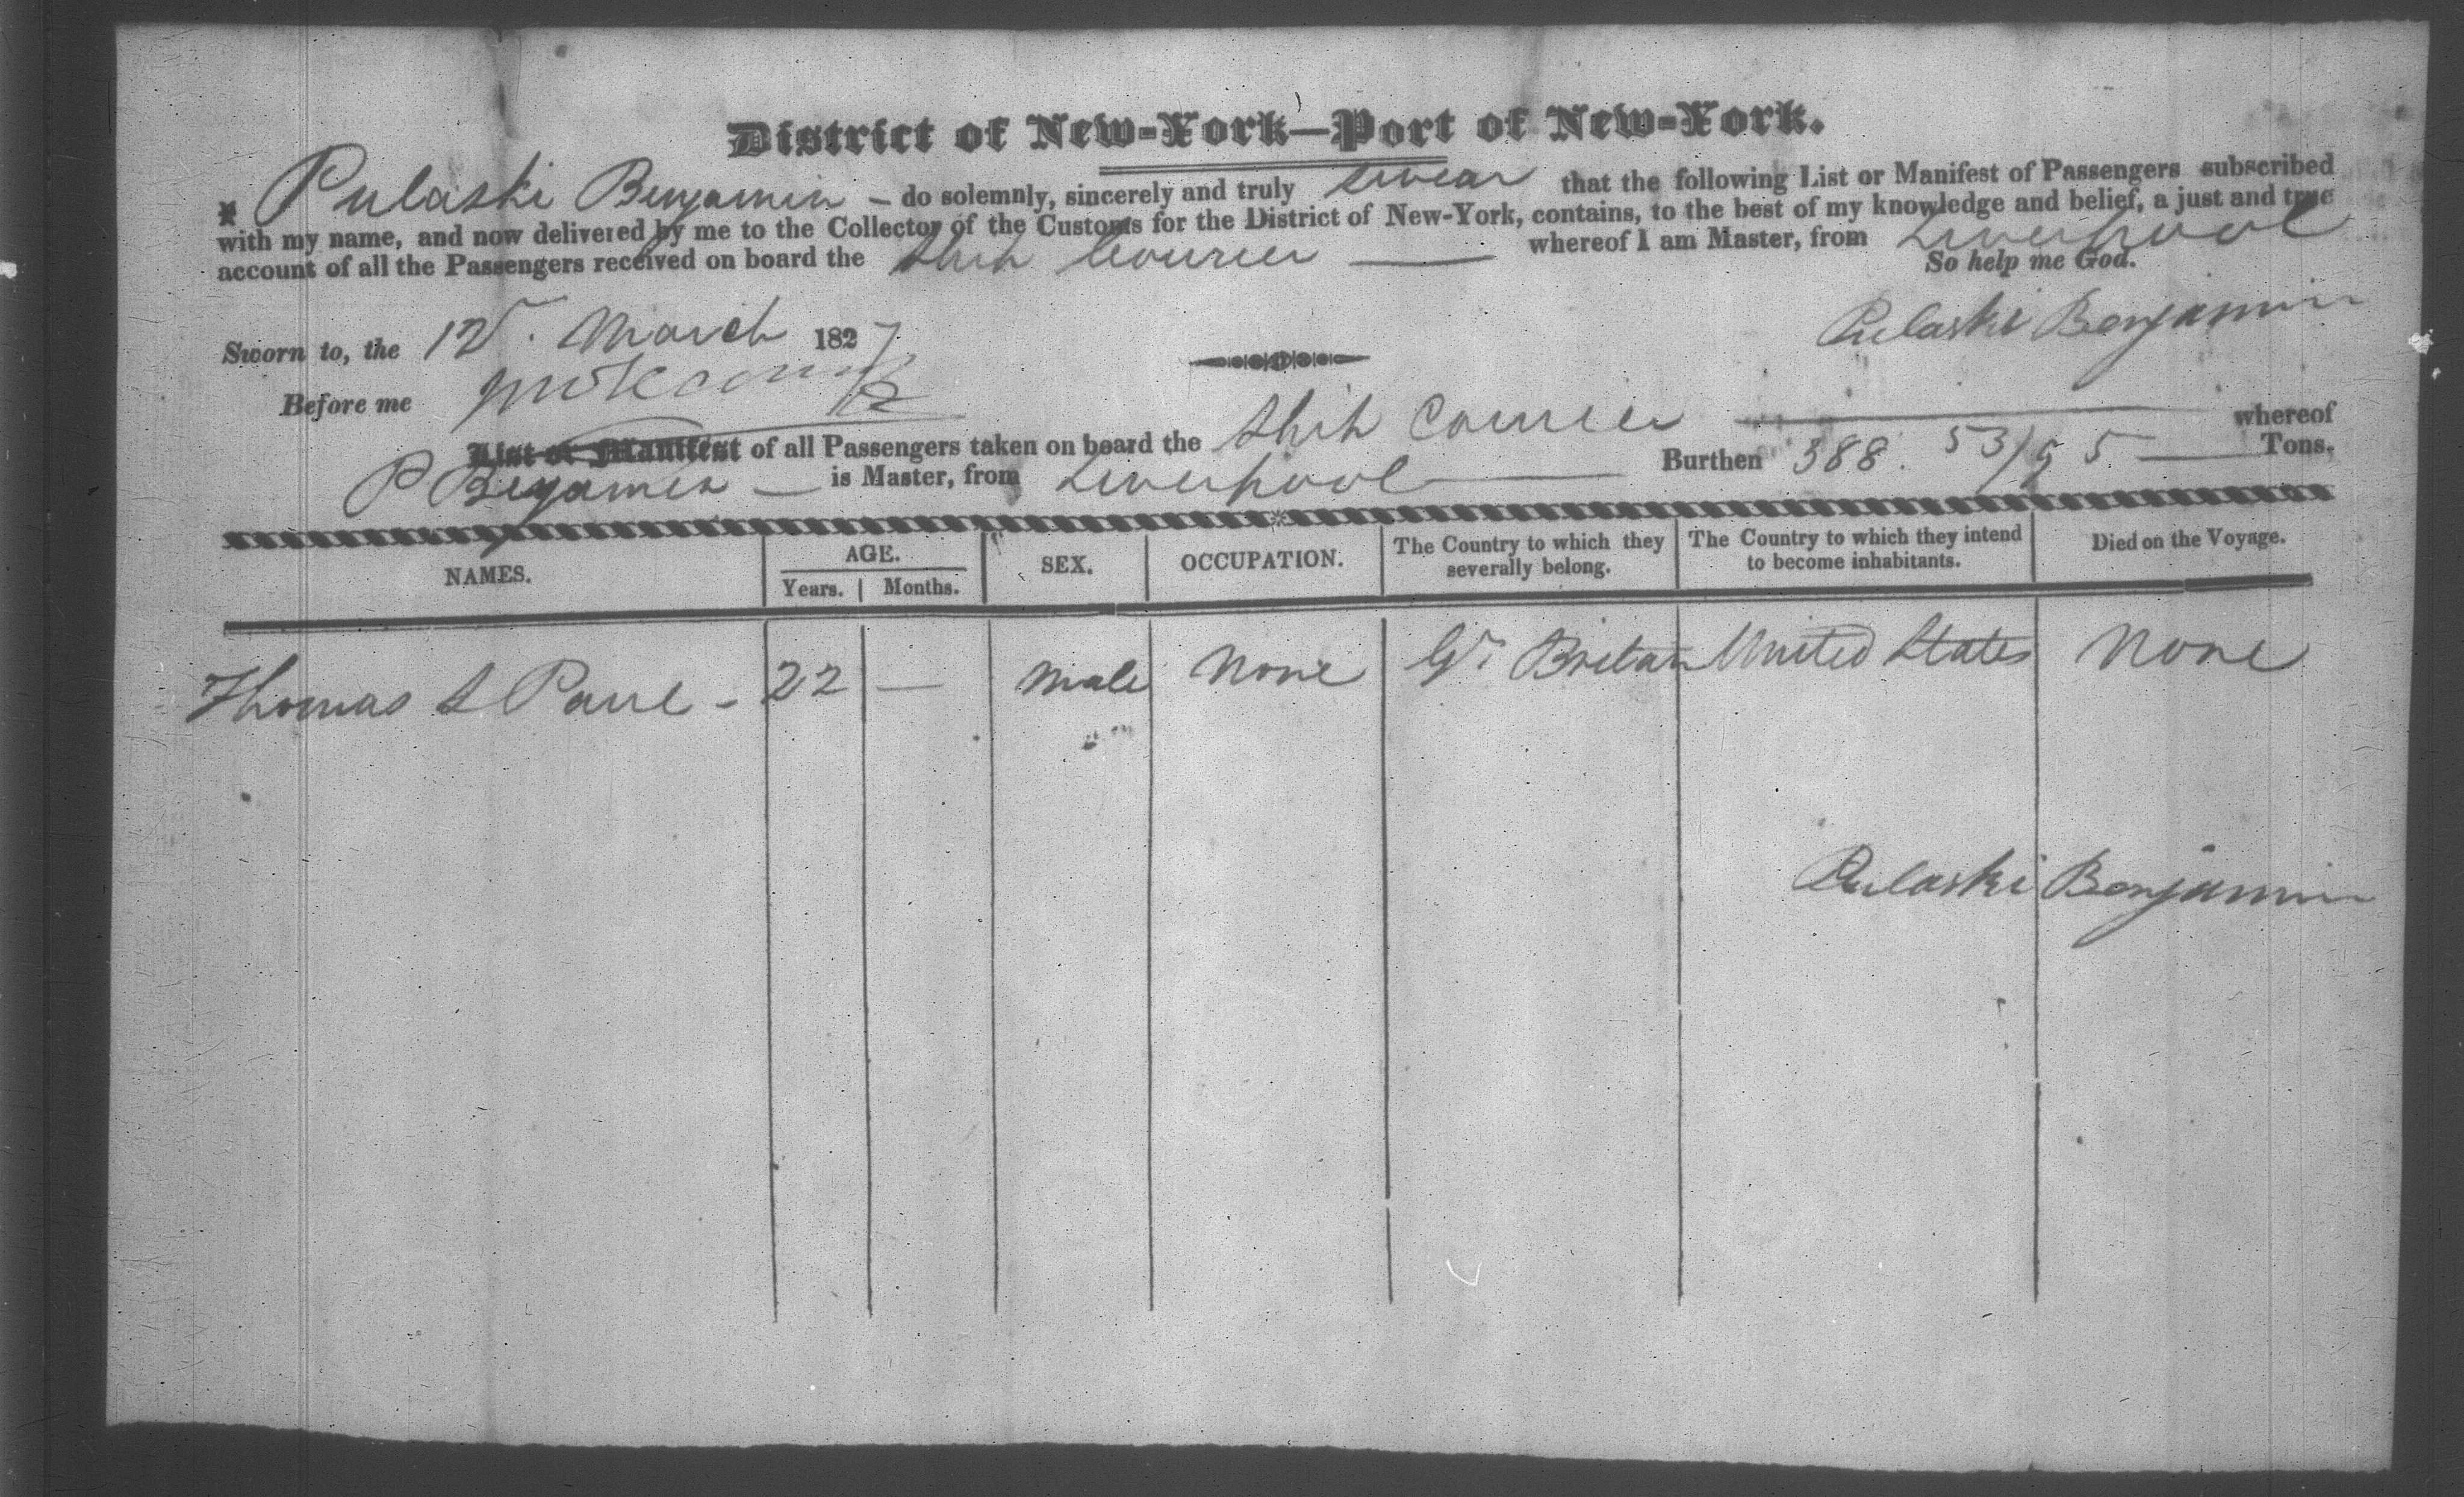 District of New-York—Port of New-York.
I Pulaski Benjamin — do solemnly, sincerely and truly swear that the following List or Manifest of Passengers subscribed
with my name, and now delivered by me to the Collector of the Customs for the District of New-York, contains, to the best of my knowledge and belief, a just and true
account of all the Passengers received on board the Ship Courier — whereof I am Master, from Liverpool
So help me God.
Sworn to, the 12 March 1827
Pulaski Benjamin
Before me
List or Manifest of all Passengers taken on board the Ship Courier — whereof
P Benjamin — is Master, from Liverpool — Burthen 388. 53/95 — Tons.
NAMES. AGE. Years. Months. SEX. OCCUPATION. The Country to which they severally belong. The Country to which they intend to become inhabitants. Died on the Voyage.
Thomas - 22 — male None Gr. Britan United States None
Pulaski Benjamin